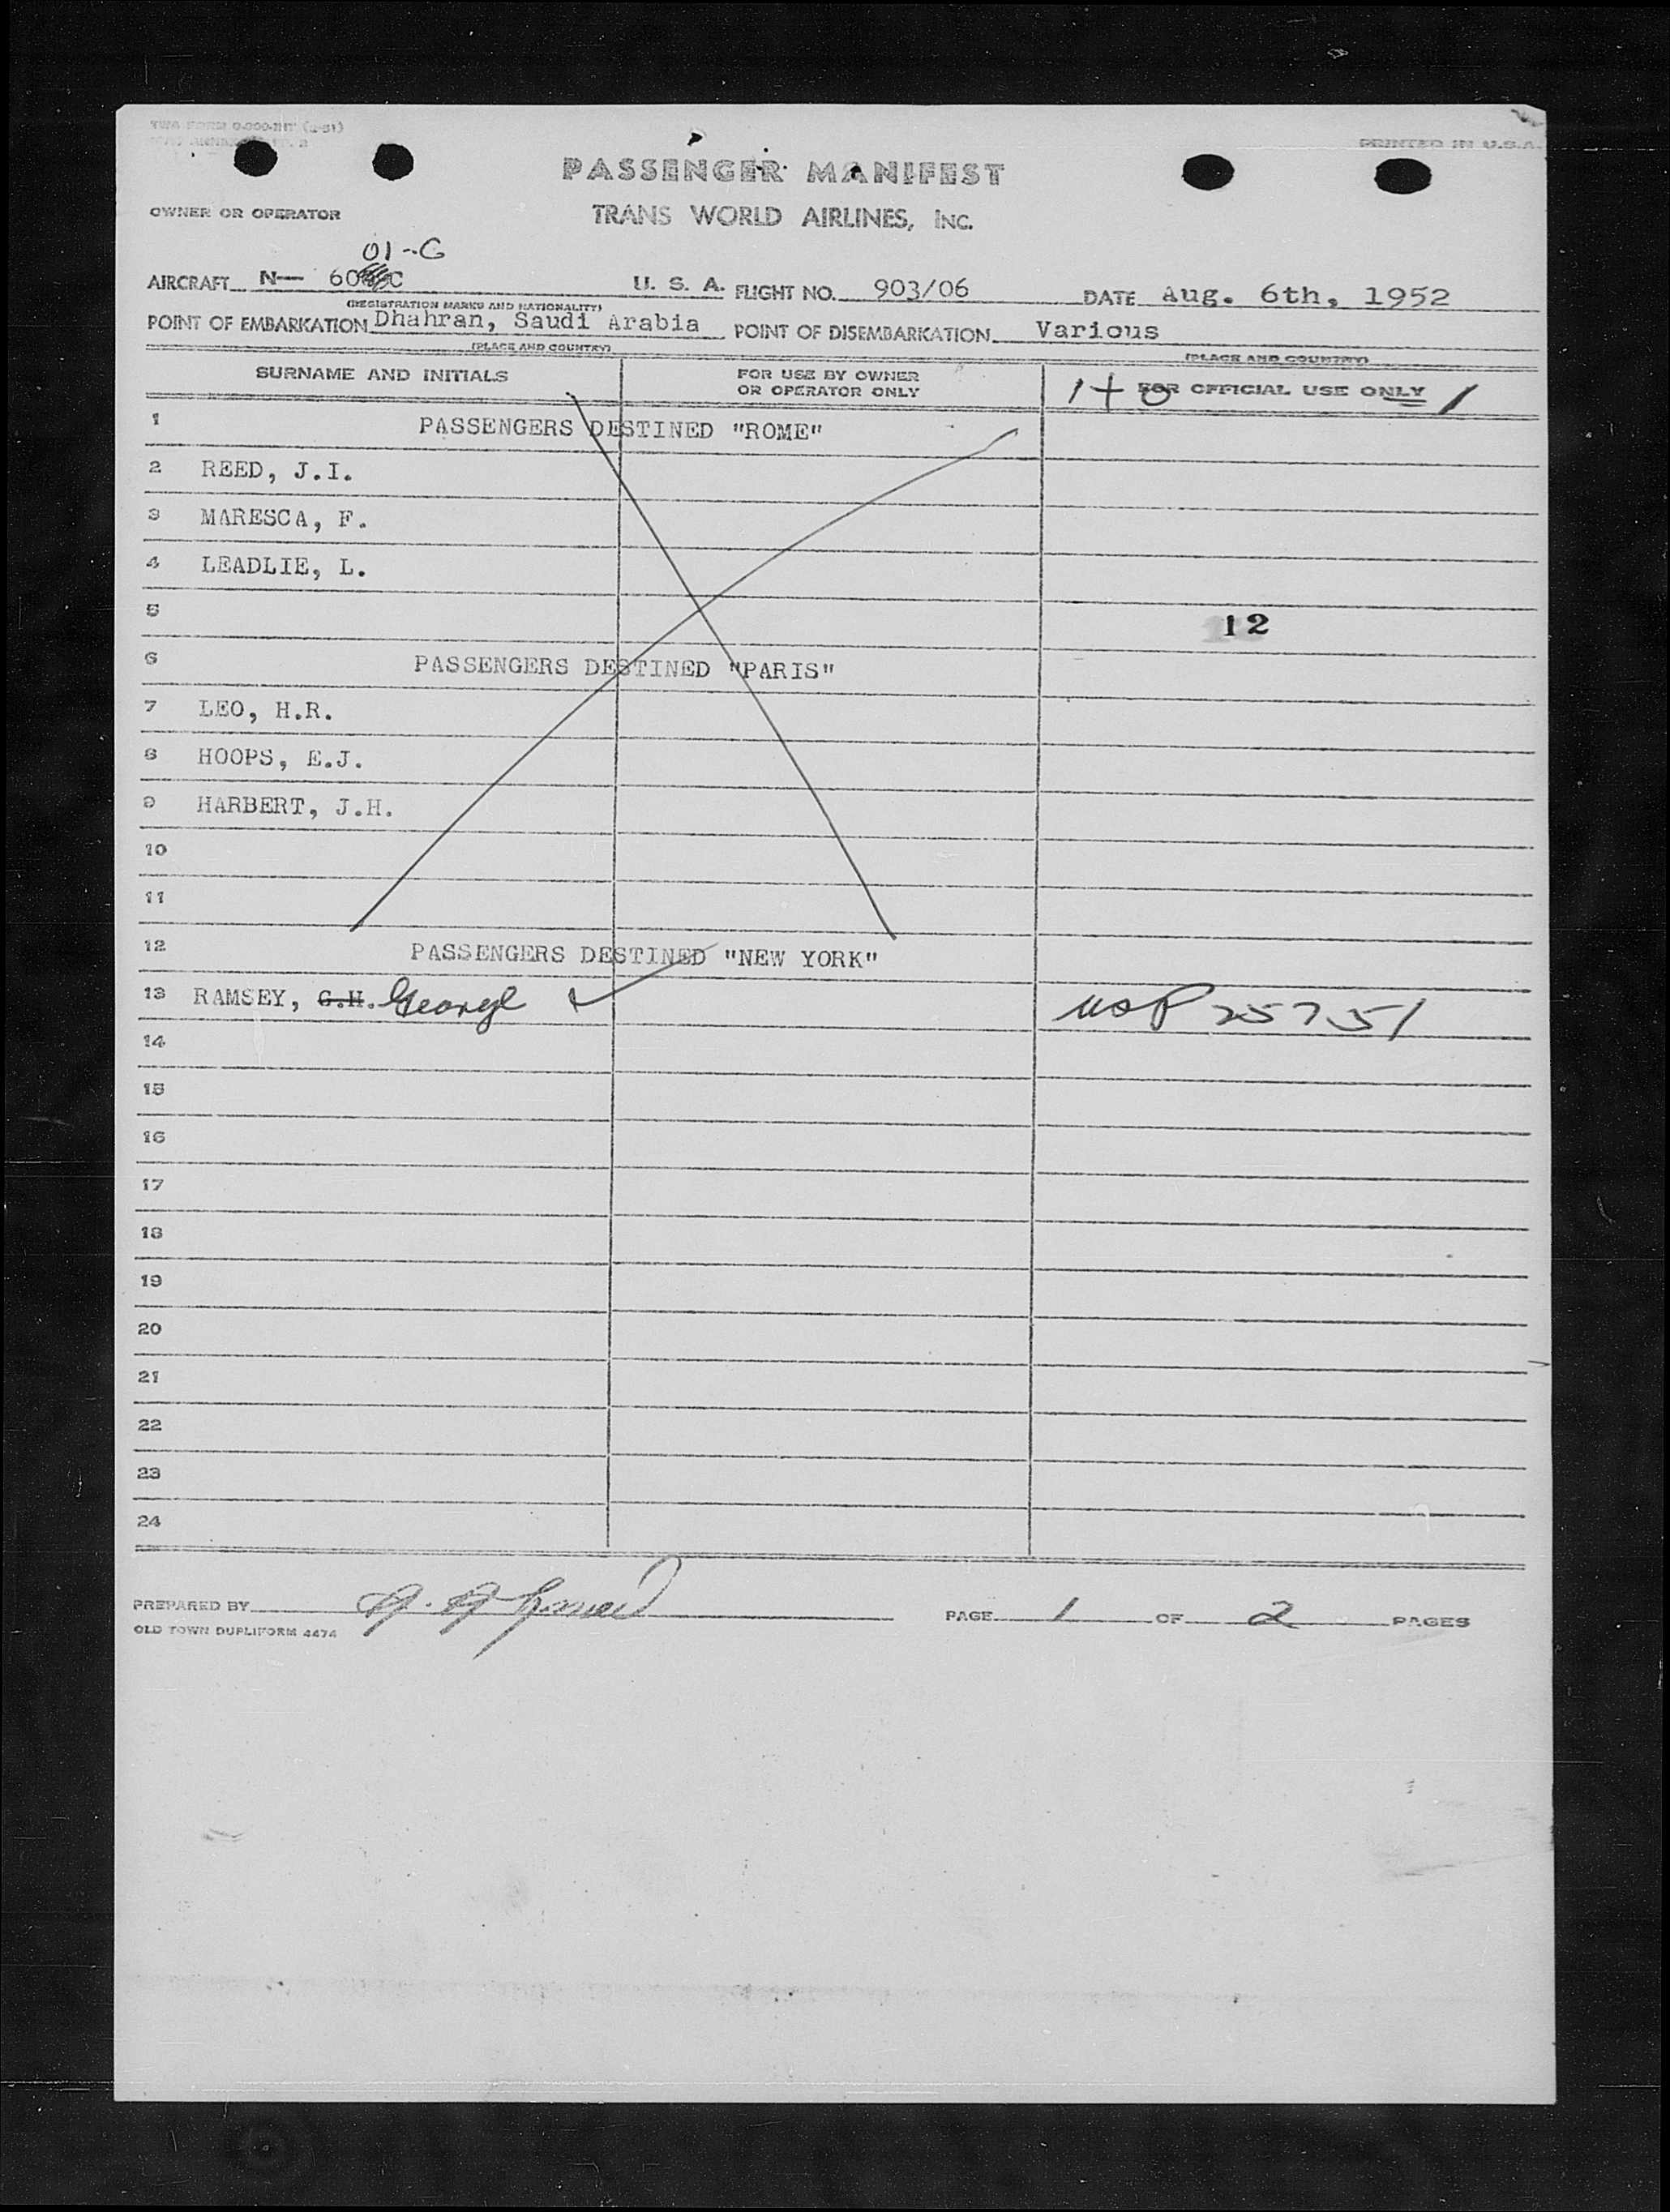 PRINTED IN U.S.A.
PASSENGER MANIFEST
OWNER OR OPERATOR
TRANS WORLD AIRLINES, INC.
01-C
AIRCRAFT N— 60 C U. S. A. FLIGHT NO. 903/06 DATE Aug. 6th, 1952
(REGISTRATION MARKS AND NATIONALITY)
POINT OF EMBARKATION Dhahran, Saudi Arabia POINT OF DISEMBARKATION Various
(PLACE AND COUNTRY) (PLACE AND COUNTRY)
SURNAME AND INITIALS FOR USE BY OWNER OR OPERATOR ONLY 1+0 FOR OFFICIAL USE ONLY 1
1 PASSENGERS DESTINED "ROME"
2 REED, J.I.
3 MARESCA, F.
4 LEADLIE, L.
5 12
6 PASSENGERS DESTINED "PARIS"
7 LEO, H.R.
8 HOOPS, E.J.
9 HARBERT, J.H.
10
11
12 PASSENGERS DESTINED "NEW YORK"
13 RAMSEY, G.H. George USP 25751
14
15
16
17
18
19
20
21
22
23
24
PREPARED BY PAGE 1 OF 2 PAGES
OLD TOWN DUPLIFORM 4474